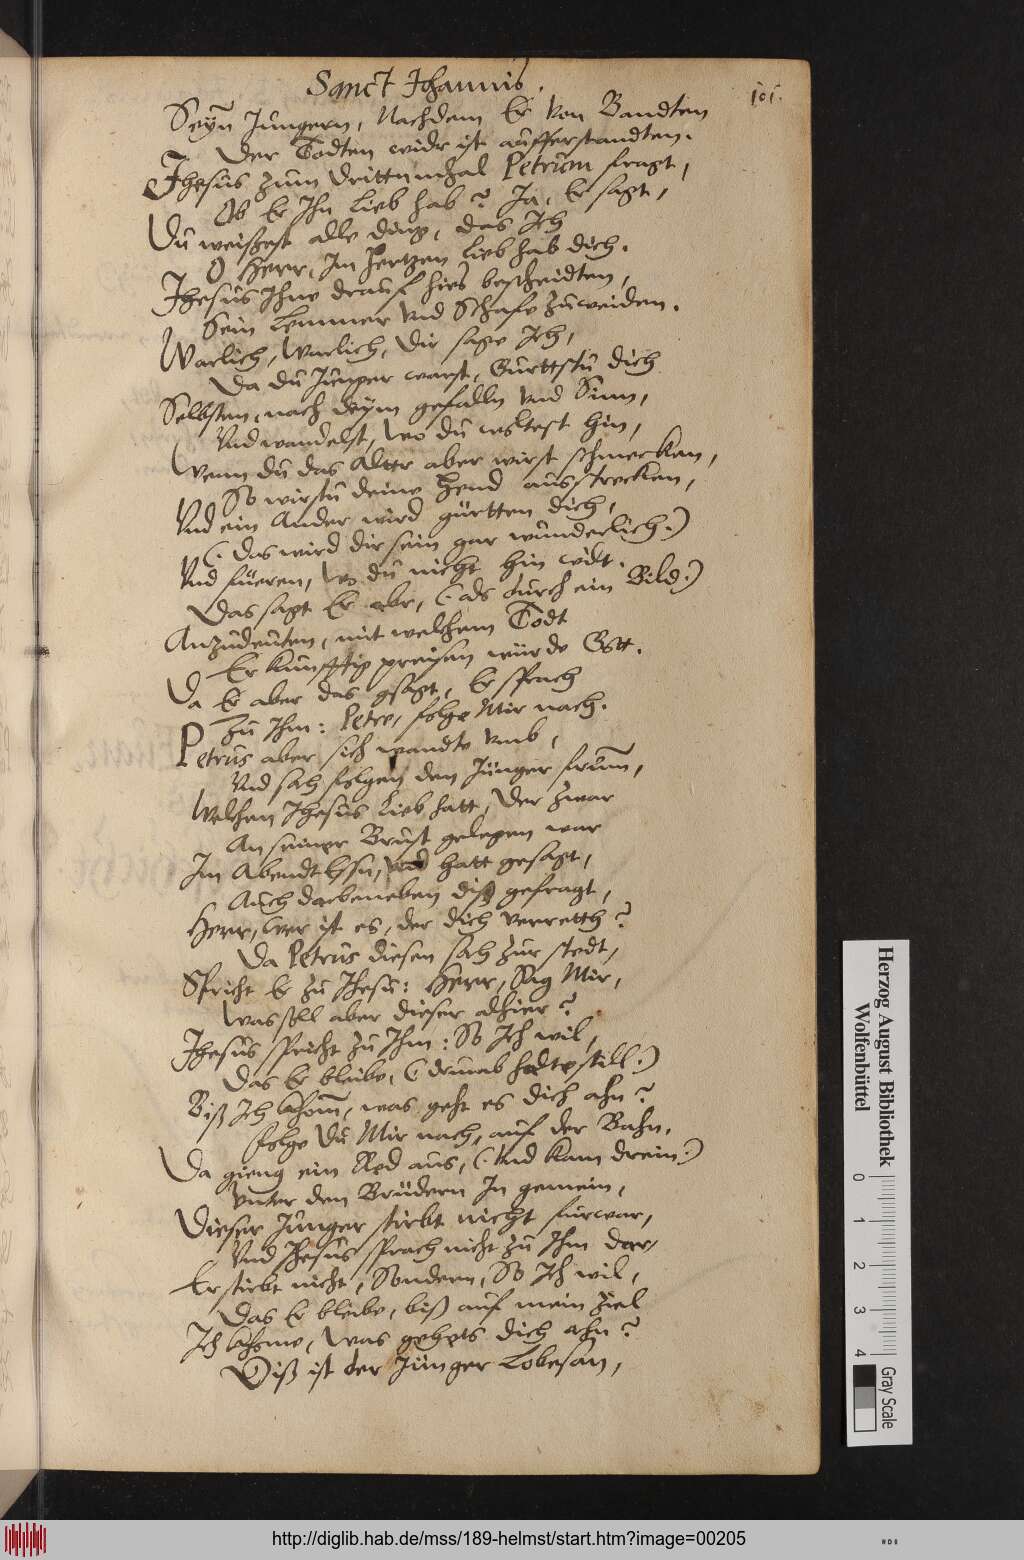 Sanct Johannis.
101.
Seÿn Jüngern, Nachdem Er von Bandten
Der Todten widr ist aufferstandten.
Jhesus zum drittnmhal Petrum fragt,
Ob Er Ihn lieb hab? Ja, Er sagt,
Du weissest alle ding, das Ich
O Herr, Im hertzen lieb hab dich.
Jhesus Ihne drauf hies bescheidten,
Sein Lemmer vnd Schafe zuweiden.
Warlich, Warlich, Dir sage Ich,
Da du Jünger warst, Gürttstu dich
Selbsten, nach deÿm gefalln vnd Sinn,
Vnd wandelst, wo du woltest hin,
Wenn du das Alttr aber wirst schmecken,
So wirstu deine Hend ausstrecken,
Vnd ein Ander wird gürtten dich,
(. Das wird dir sein gar wunderlich.)
Vnd füeren, wo du nicht hin wolt.
Das sagt Er abr, (. als durch ein Bild.)
Anzudeuten, mit welchem Todt
Er künfftig preisen würde Gott.
Da Er aber das gsagt, Er sprach
Zu Ihm: Petre, folge Mir nach.
Petrus aber sich wandte vmb,
Vnd sah folgen den Jünger frum̄,
Welchen Jhesus lieb hatt, der zwar
An seiner Brust gelegen war
Im Abendtessn, vnd hatt gesagt,
Auch darbeneben diß gefragt,
Herr, wer ist es, der dich verretth?
Da Petrus diesen sah zur stedt,
Spricht Er zu Jhesu: Herr, Sag Mir,
Was soll aber dieser alhier?
Jhesus spricht zu Ihm: So Ich wil,
Das Er bleibe, (. drumb haltestill.)
Biß Ich khom̄, was geht es dich ahn?
folge Du Mir nach, auf der Bahn.
Da gieng ein Red aus, (. Vnd kam drein.)
Vnter den Brüdern In gemein,
Dieser Jünger stirbt nicht fürwar,
Vnd Jhesus sprach nicht zu Ihm dar,
Er stirbt nicht, Sondern, So Ich wil,
Das Er bleibe, biß auf mein ziel
Ich khome, Was gehets dich ahn?
Diß ist der Jünger Lobesan,
Herzog August Bibliothek
Wolfenbüttel
0 1 2 3 4
Gray Scale
http://diglib.hab.de/mss/189-helmst/start.htm?image=00205